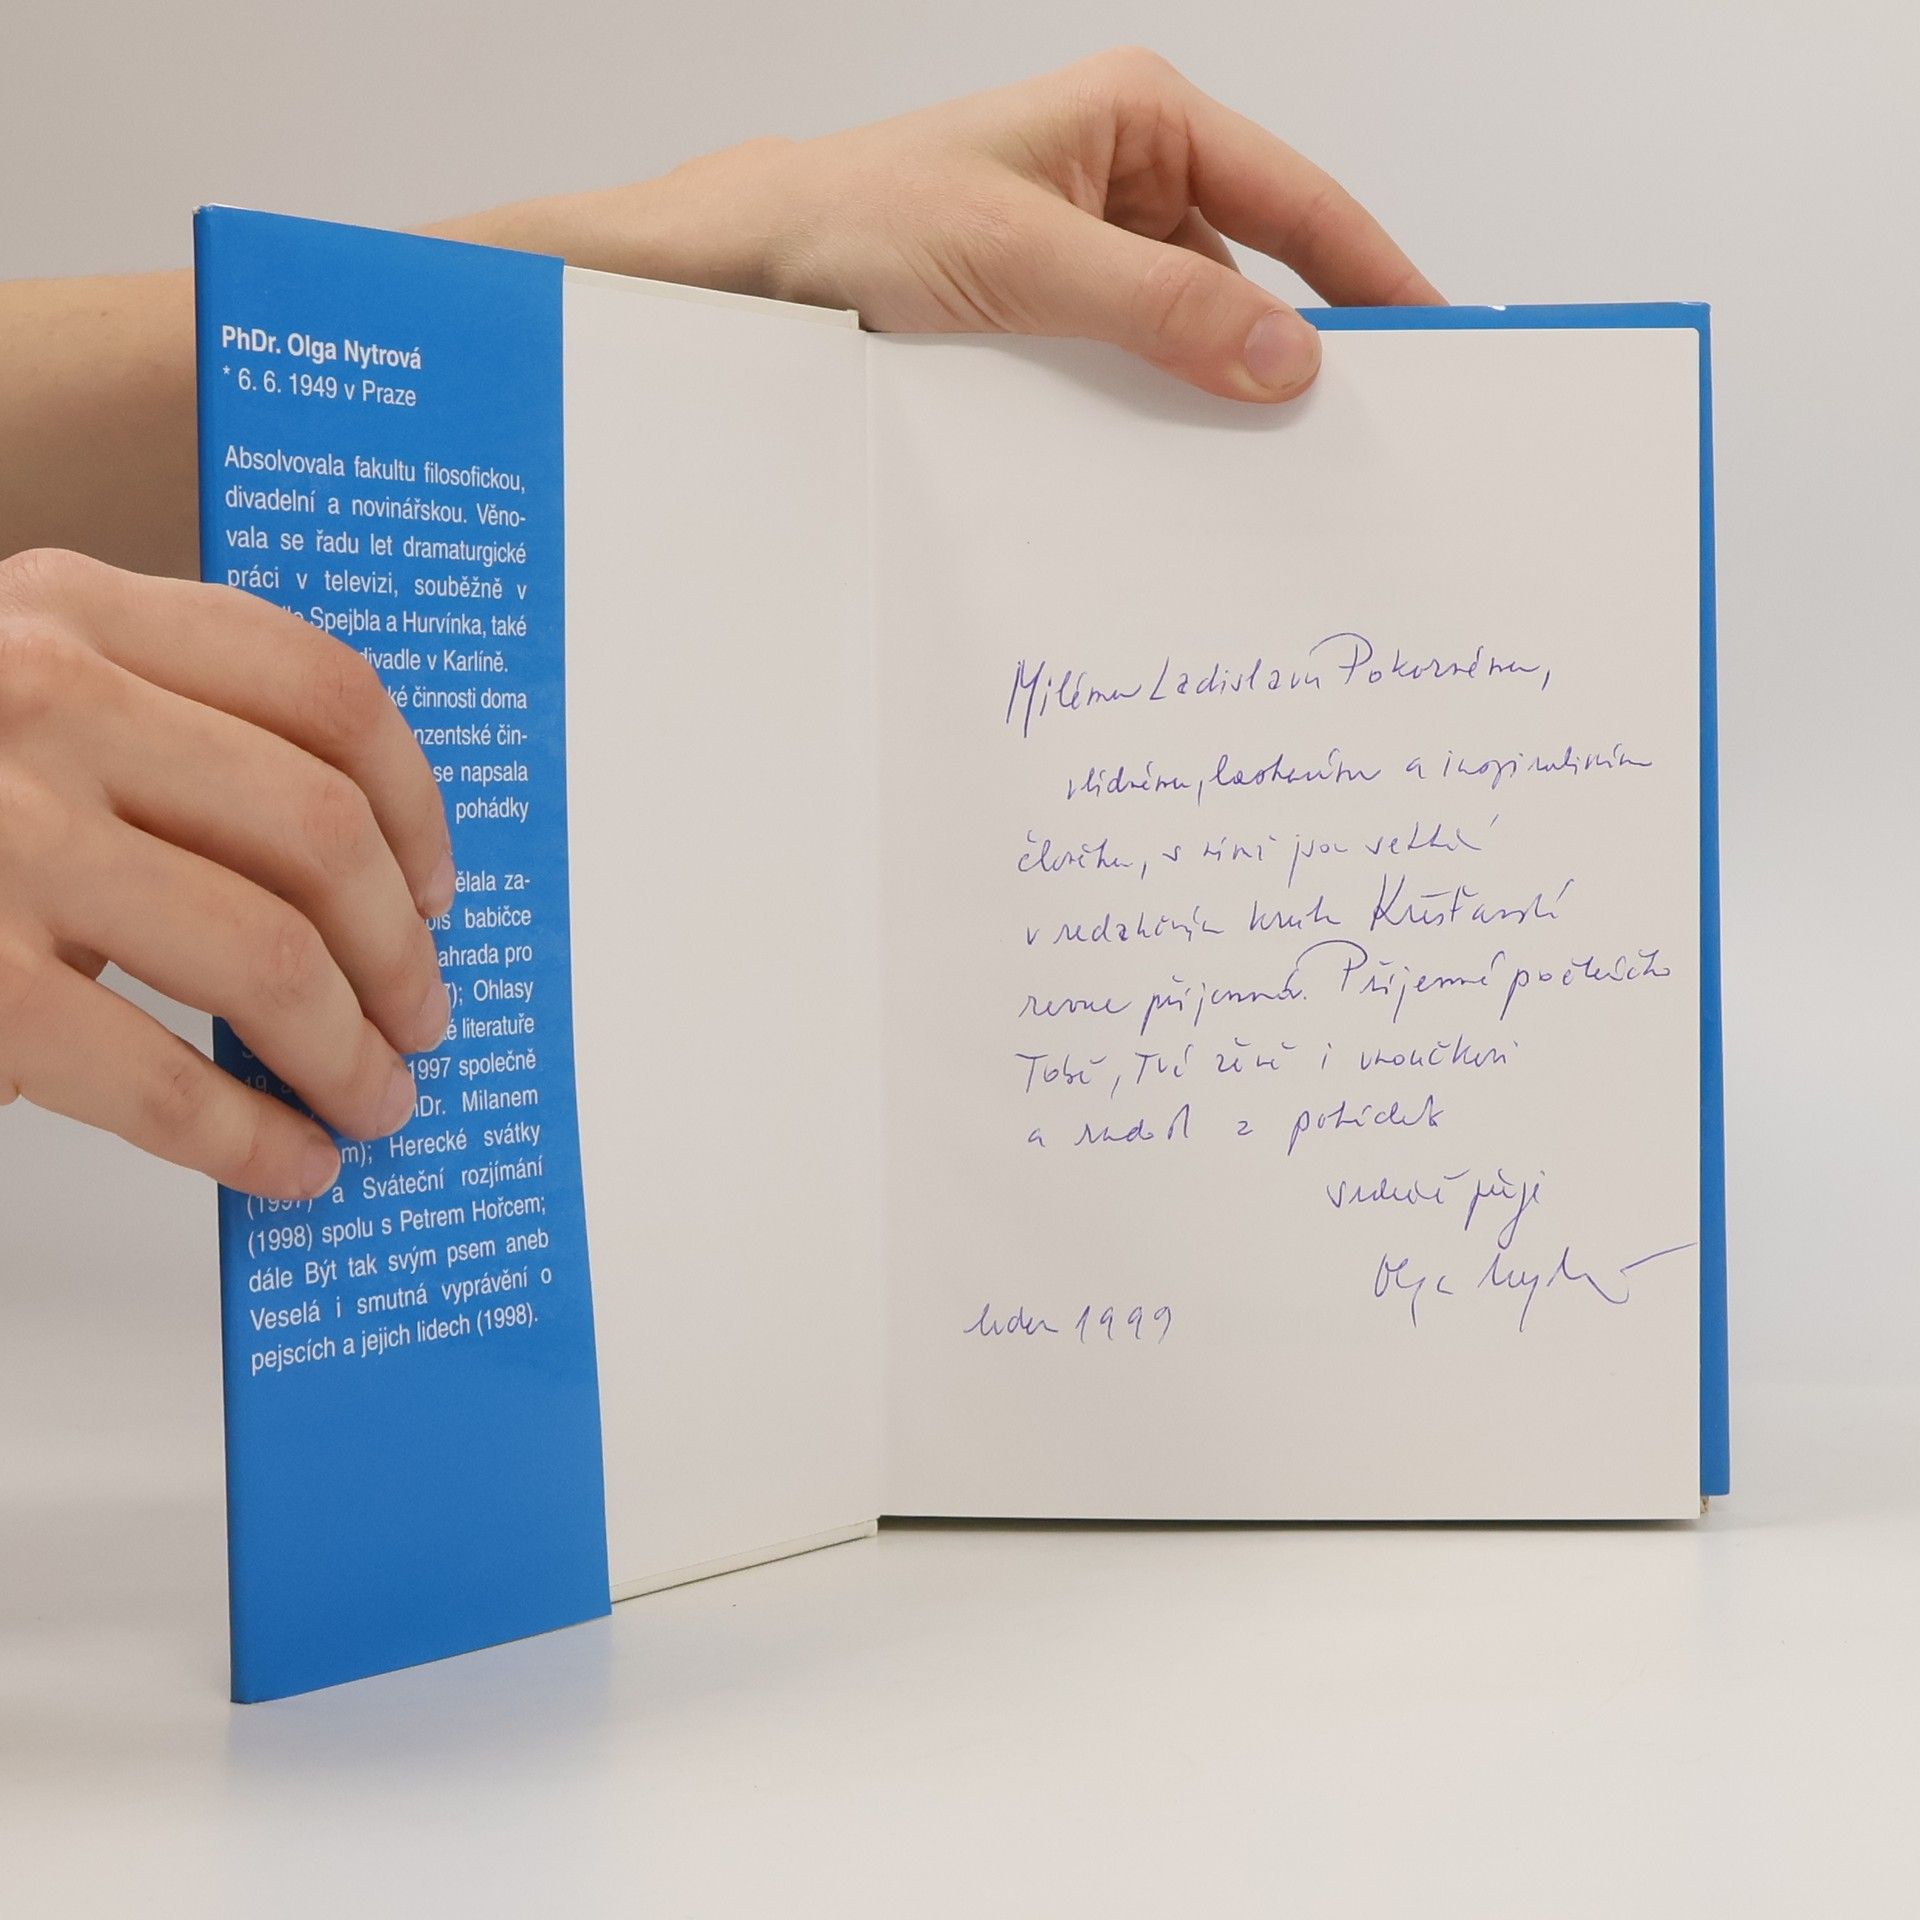 PhDr. Olga Nytrová
* 6. 6. 1949 v Praze
Absolvovala fakultu filosofickou,
divadelní a novinářskou. Věno-
vala se řadu let dramaturgické
práci v televizi, souběžně v
Spejbla a Hurvínka, také
divadle v Karlíně.
činnosti doma
čin-
se napsala
pohádky
za-
babičce
pro
Ohlasy
literatuře
1997 společně
Milanem
Herecké svátky
(1997) a Sváteční rozjímání
(1998) spolu s Petrem Hořcem;
dále Být tak svým psem aneb
Veselá i smutná vyprávění o
pejscích a jejich lidech (1998).
Milému Ladislavu Pokornému,
vlídnému, laskavému a inspirativnímu
člověku, s nímž jsou setkání
v redakčním kruhu Křesťanské
revue příjemná. Příjemné počteníčko
Tobě, Tvé ženě i vnoučkovi
a radost z pohádek
srdečně přeje
Olga Nytrová
leden 1999